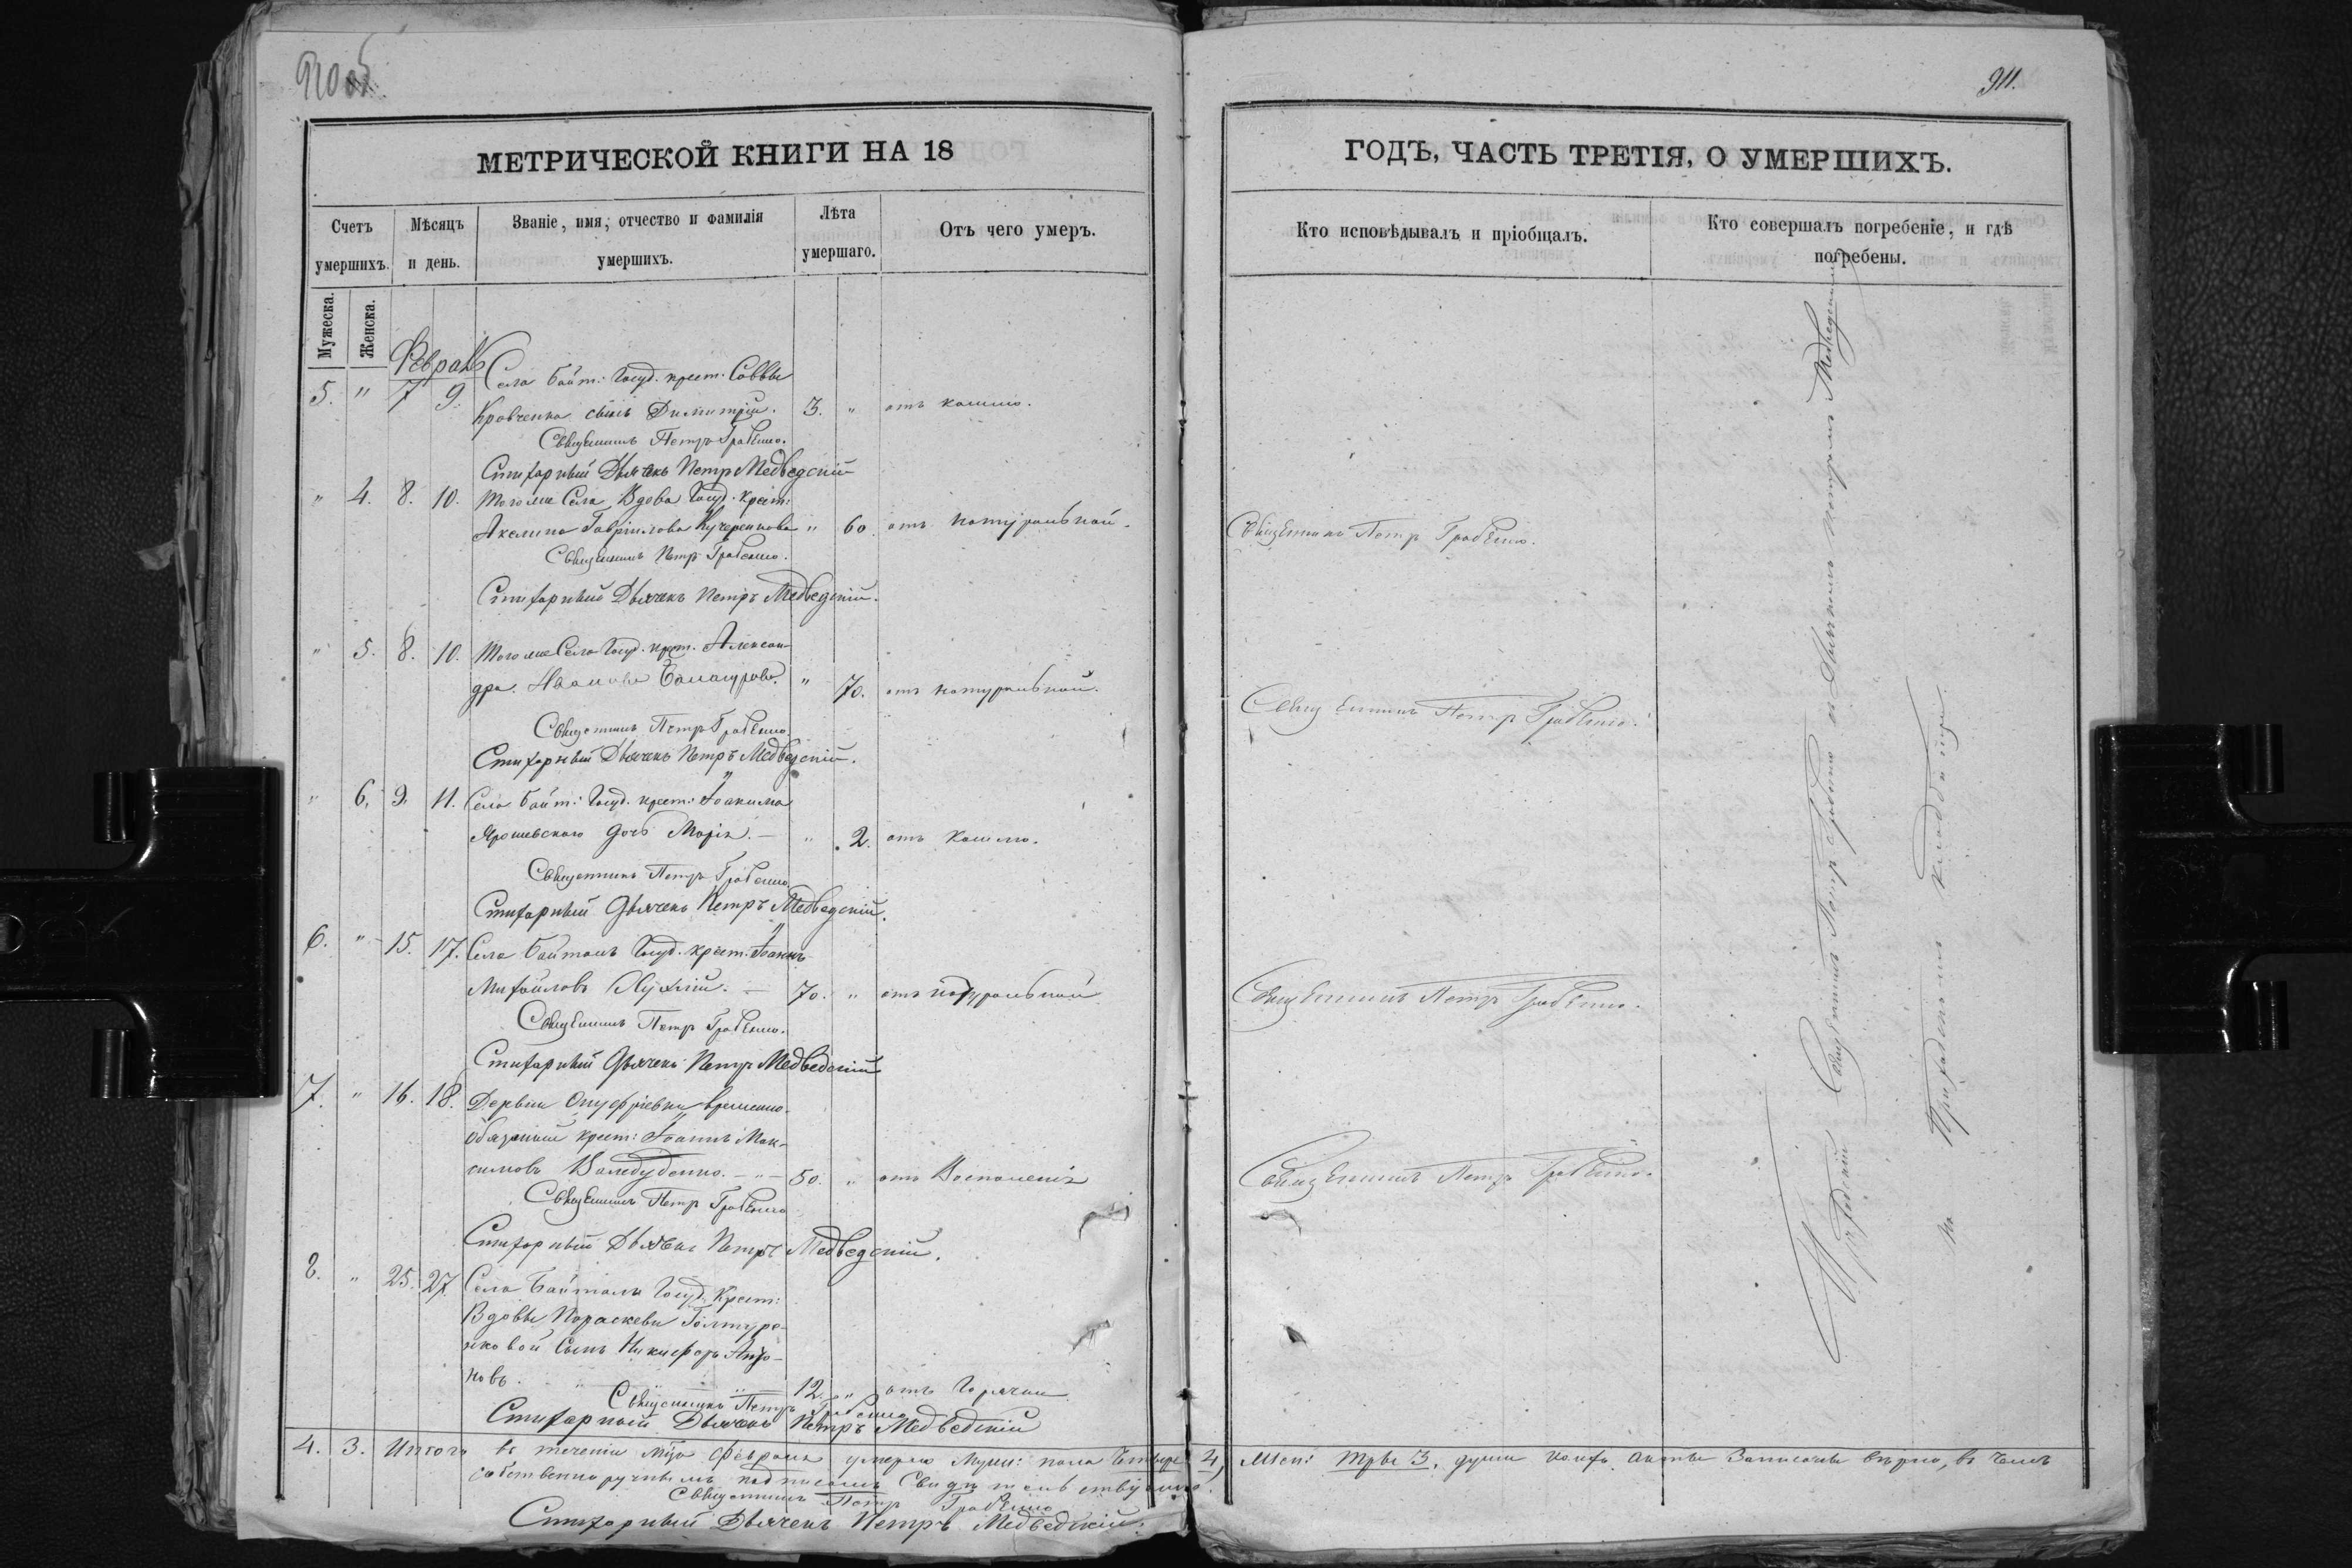 910 об.
МЕТРИЧЕСКОЙ КНИГИ НА 18
Счетъ умершихъ.
Мѣсяцъ и день.
Званіе, имя, отчество и фамилія умершихъ.
Лѣта умершаго.
Отъ чего умеръ.
Мужеска.
Женска.
Февраль
5. " 7 9. Села Байт: Госуд. крест. Саввы
Кравченка сынъ Димитрій. 3. " отъ кашлю.
Священникъ Петръ
Стихарный Дьячекъ Петръ Медведскій
" 4. 8. 10. Того же Села Вдова Госуд. крест:
Акилина Гавріилова Кучеренкова " 60. отъ натуральной.
Священникъ Петръ
Стихарный Дьячекъ Петръ Медведскій.
" 5. 8. 10. Того же Села Госуд. крест. Алексан-
дра Иванова " 70. отъ натуральной.
Священникъ Петръ
Стихарный Дьячекъ Петръ Медведскій.
" 6. 9. 11. Села Байт: Госуд. крест: Іоакима
Ярошевскаго дочь Марія. — " 2. отъ Кашлю.
Священникъ Петръ
Стихарный Дьячекъ Петръ Медведскій.
6. " 15. 17. Села Байталъ Госуд. крест. Іоаннъ
Михайловъ — 70. " отъ натуральной
Священникъ Петръ
Стихарный Дьячекъ Петръ Медведскій
7. " 16. 18. Деревни Онуфріевки временно-
обязанный крест: Іоаннъ Мак-
симовъ — " — 50. " отъ Воспаленія
Священникъ Петръ
Стихарный Дьячекъ Петръ Медведскій.
8. " 25. 27. Села Байталъ Госуд. Крест:
Вдовы Параскевы
нковой Сынъ Никифоръ
новъ. 12. " отъ Горячки
Священникъ Петръ
Стихарный Дьячекъ Петръ Медведскій
4. 3. Итого въ теченіи Февраля умерло Муж: пола Четыре 4,
собственноручнымъ подписомъ Свидѣтельствуемъ.
Священникъ Петръ
Стихарный Дьячекъ Петръ Медведскій.
911.
ГОДЪ, ЧАСТЬ ТРЕТІЯ, О УМЕРШИХЪ.
Кто исповѣдывалъ и пріобщалъ.
Кто совершалъ погребеніе, и гдѣ погребены.
Священникъ Петръ
Священникъ Петръ
Священникъ Петръ
Священникъ Петръ
Священникъ Петръ съ Дьячкомъ Петромъ Медведскимъ
на Приходскомъ кладбищѣ.
Жен: Три 3. души акты Записаны вѣрно, въ чемъ